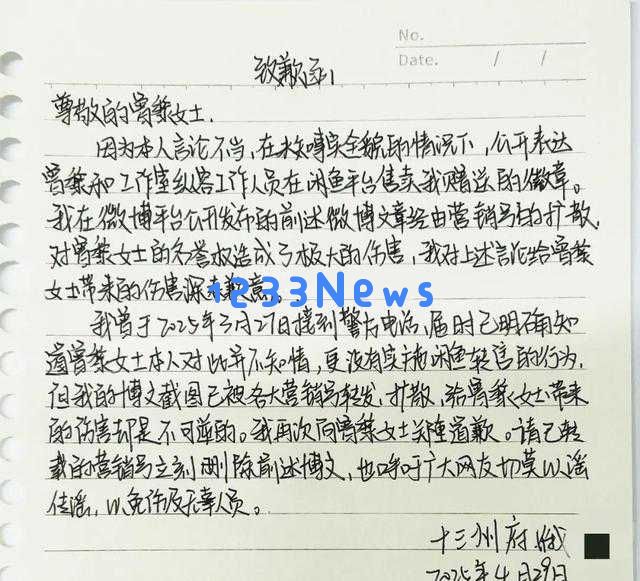 No.
Date. / /
致歉函
尊敬的曾黎女士,
因为本人言论不当,在未核实全貌的情况下,公开表达
曾黎和工作室纵容工作人员在闲鱼平台售卖我赠送的徽章。
我在微博平台公开发布的前述微博文章经由营销号的扩散,
对曾黎女士的名誉权造成了极大的伤害,我对上述言论给曾黎
女士带来的伤害深表歉意。
1233News
我曾于2025年3月27日接到警方电话,届时已明确知
道曾黎女士本人对此并不知情,更没有实施闲鱼转售的行为,
但我的博文截图已被各大营销号转发、扩散,给曾黎女士带来
的伤害却是不可逆的。我再次向曾黎女士郑重道歉。请已转
载的营销号立刻删除前述博文,也呼吁广大网友切莫以谣
传谣,以免伤及无辜人员。
十三州府
2025年4月29日